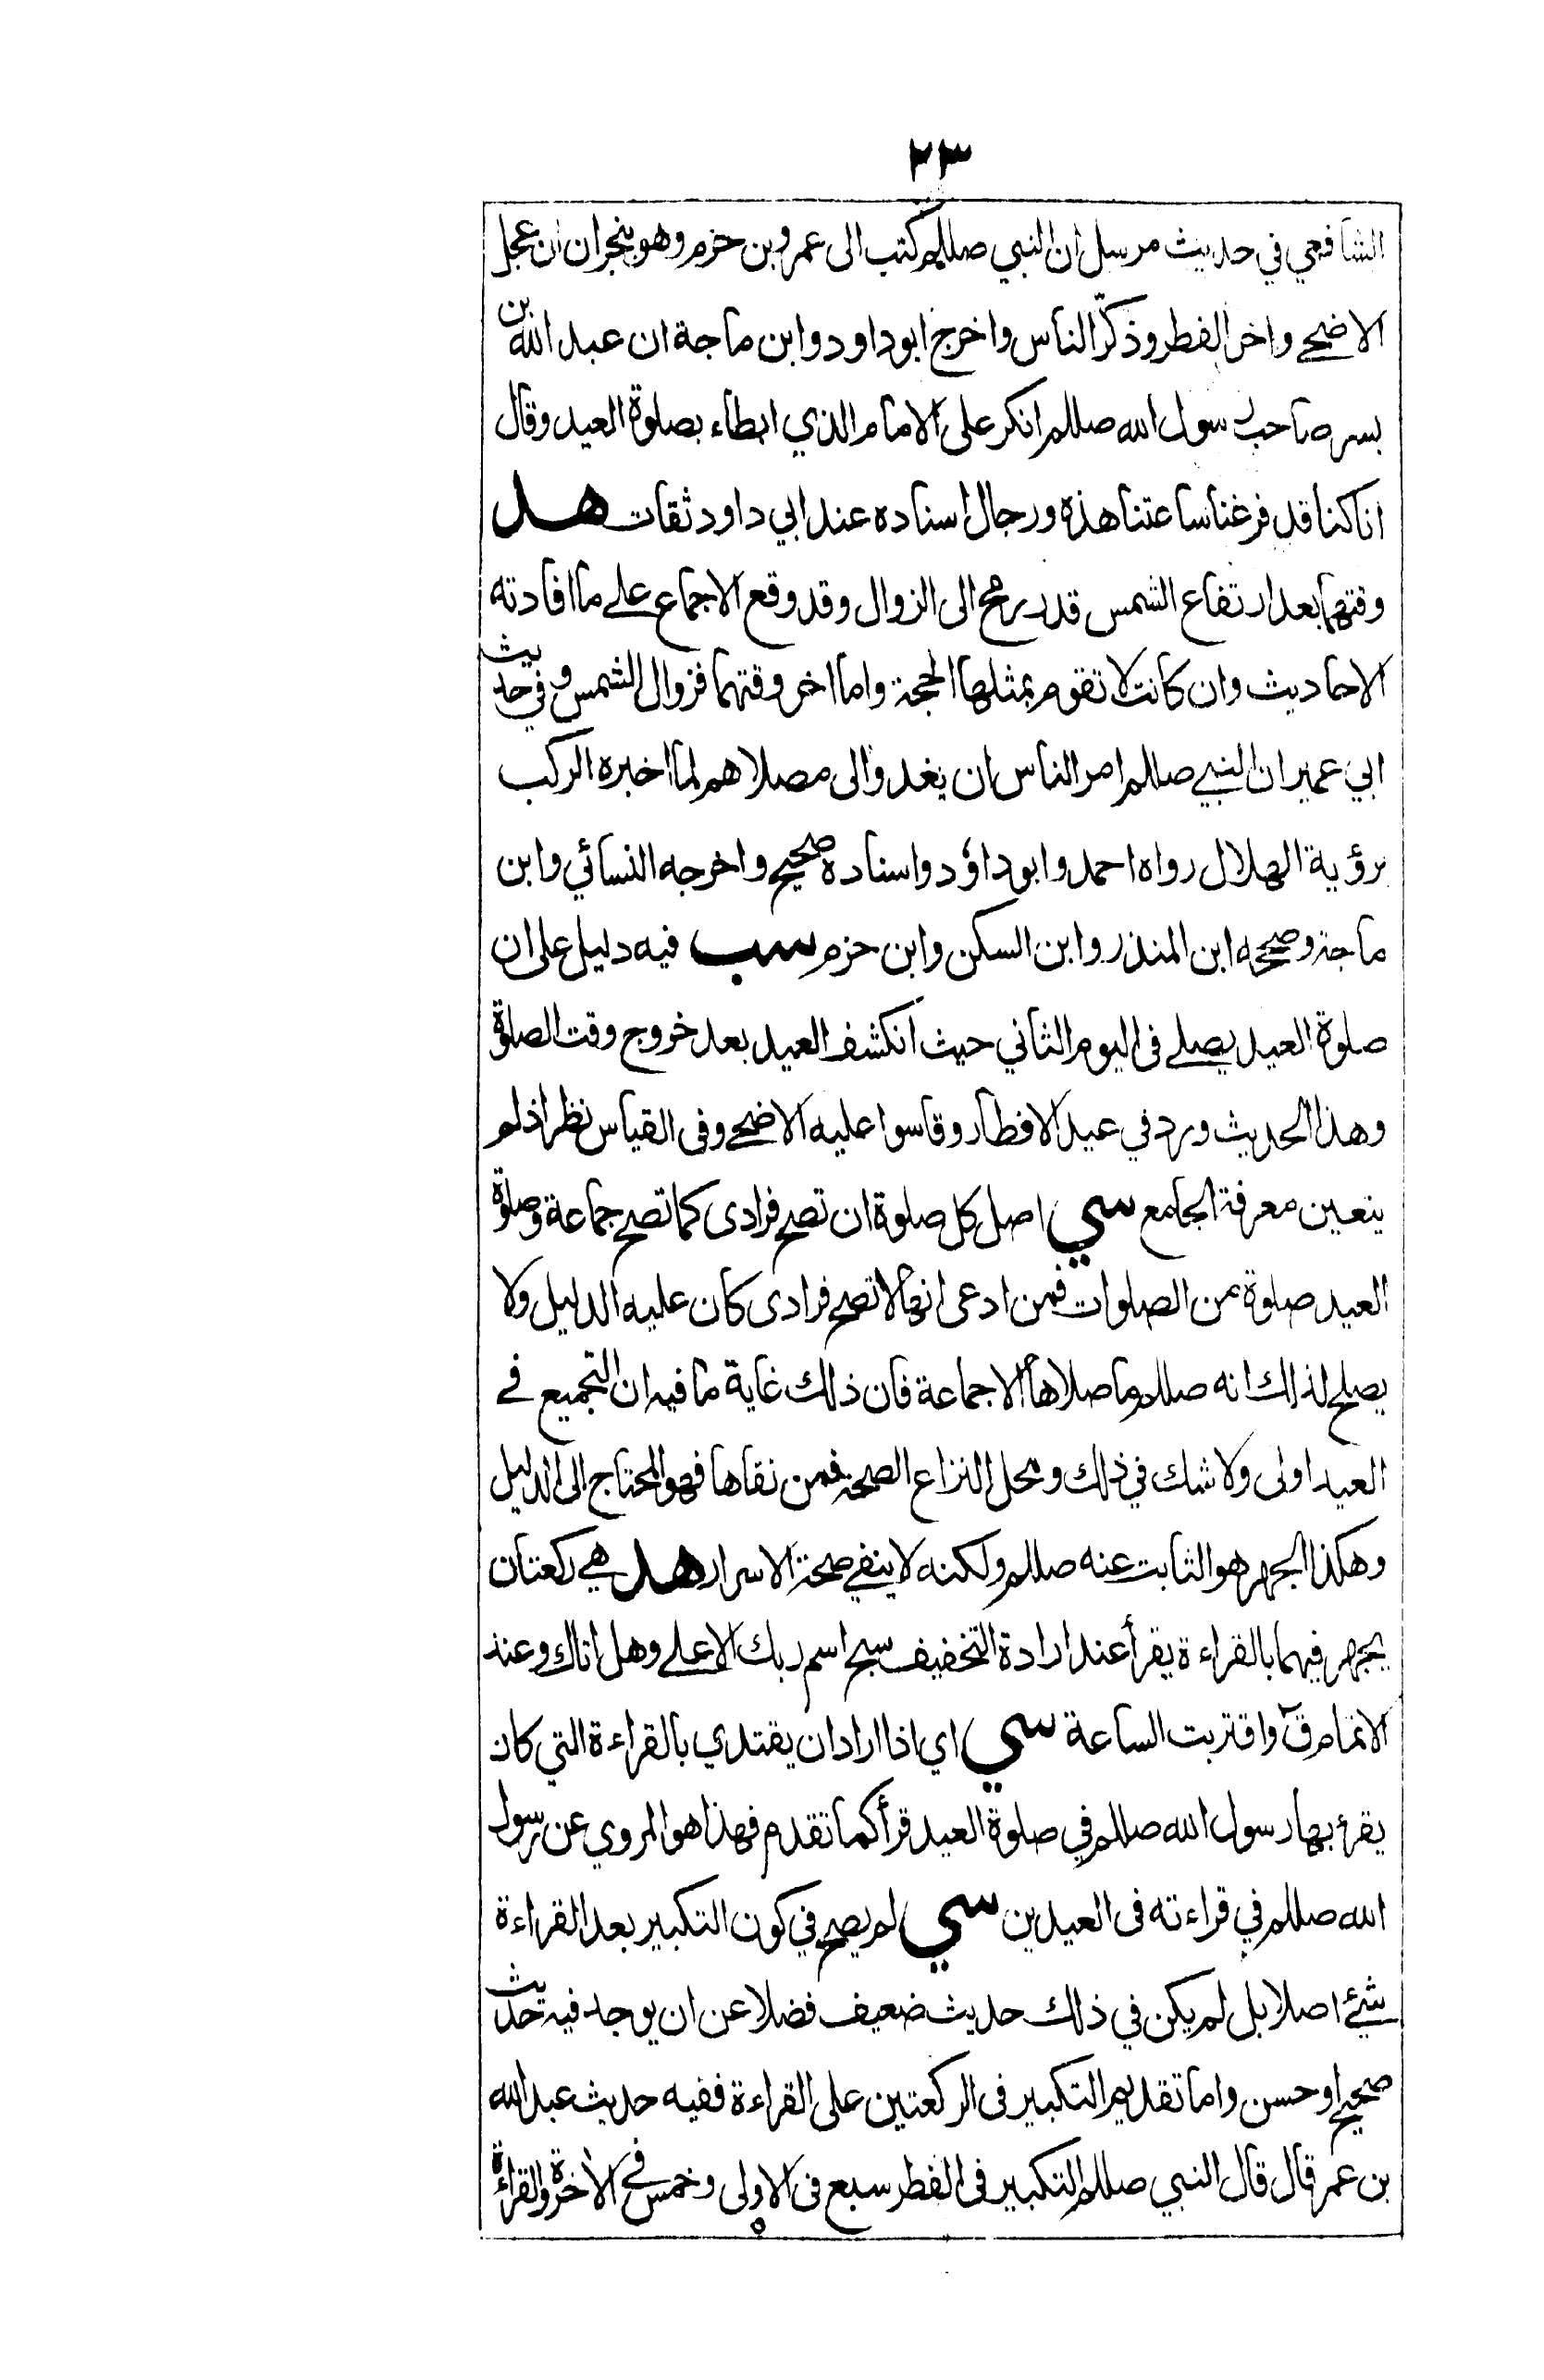 ٢٣
الشافعي في حديث مرسل ان النبي صللم كتب الى عمرو بن حزم وهو بنجران ان عجل
الاضحے واخر الفطر وذكّر الناس واخرج ابوداود وابن ماجة ان عبد الله بن
بسر صاحب رسول الله صللم انكر على الامام الذي ابطاء بصلوة العيد وقال
انا كنا قد فرغنا ساعتنا هذه ورجال اسناده عند ابي داود ثقات هـل
وقتهما بعد ارتفاع الشمس قدر رمح الى الزوال وقد وقع الاجماع علے ما افادته
الاحاديث وان كانت لا تقوم بمثلها الحجة واما اخر وقتهما فزوال الشمس وفي حديث
ابي عمير ان النبے صللم امر الناس ان يغدوا الى مصلاهم لما اخبره الركب
برؤية الهلال رواه احمد وابوداؤد واسناده صحيح واخرجه النسائي وابن
ماجة وصححه ابن المنذر وابن السكن وابن حزم سب فيه دليل على ان
صلوة العيد يصلے فى اليوم الثاني حيث انكشف العيد بعد خروج وقت الصلوة
وهذا الحديث ورد في عيد الافطار وقاسوا عليه الاضحے وفى القياس نظر اذ لم
يتعين معرفة الجامع سي اصل كل صلوة ان تصح فرادى كما تصح جماعة وصلوة
العيد صلوة من الصلوات فمن ادعى انها لا تصح فرادى كان عليه الدليل ولا
يصلح لذلك انه صللم ما صلاها الا جماعة فان ذلك غاية ما فيه ان التجميع فے
العيد اولى ولا شك في ذلك ومحل النزاع الصحة فمن نفاها فهو المحتاج الى الدليل
وهكذا الجهر هو الثابت عنه صللم ولكنه لا ينفي صحة الاسرار هـل هے ركعتان
يجهر فيهما بالقراءة يقرأ عند ارادة التخفيف سبح اسم ربك الاعلے وهل اتاك وعند
الاتمام قٓ واقتربت الساعة سي اي اذا اراد ان يقتدي بالقراءة التي كان
يقرء بها رسول الله صللم في صلوة العيد قرأ كما تقدم فهذا هو المروي عن رسول
الله صللم في قراءته فى العيدين سي لم يصح في كون التكبير بعد القراءة
شيئ اصلا بل لم يكن في ذلك حديث ضعيف فضلا عن ان يوجد فيه حديث
صحيح او حسن واما تقديم التكبير فى الركعتين على القراءة ففيه حديث عبد الله
بن عمر قال قال النبي صللم التكبير فى الفطر سبع فى الاولى وخمس فے الأخرة والقراءة